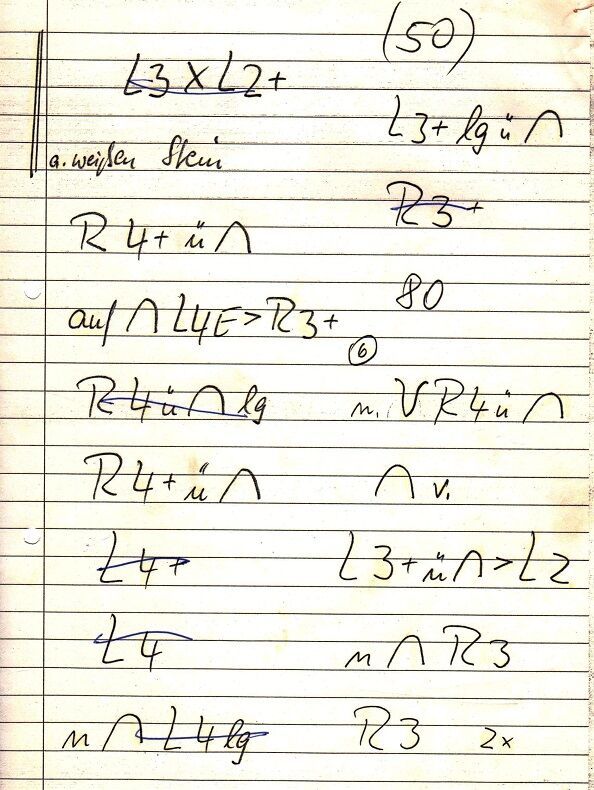 L3 X L2+
a. weißen Stein
R4+ ü ∩
auf ∩ L4E > R3+
R4 ü ∩ lg
R4+ ü ∩
L4+
L4
n ∩ L4 lg
(50)
L3+ lg ü ∩
R3+
80
6
n. V R4 ü ∩
∩ v.
L3+ ü ∩ > L2
n ∩ R3
R3 2x